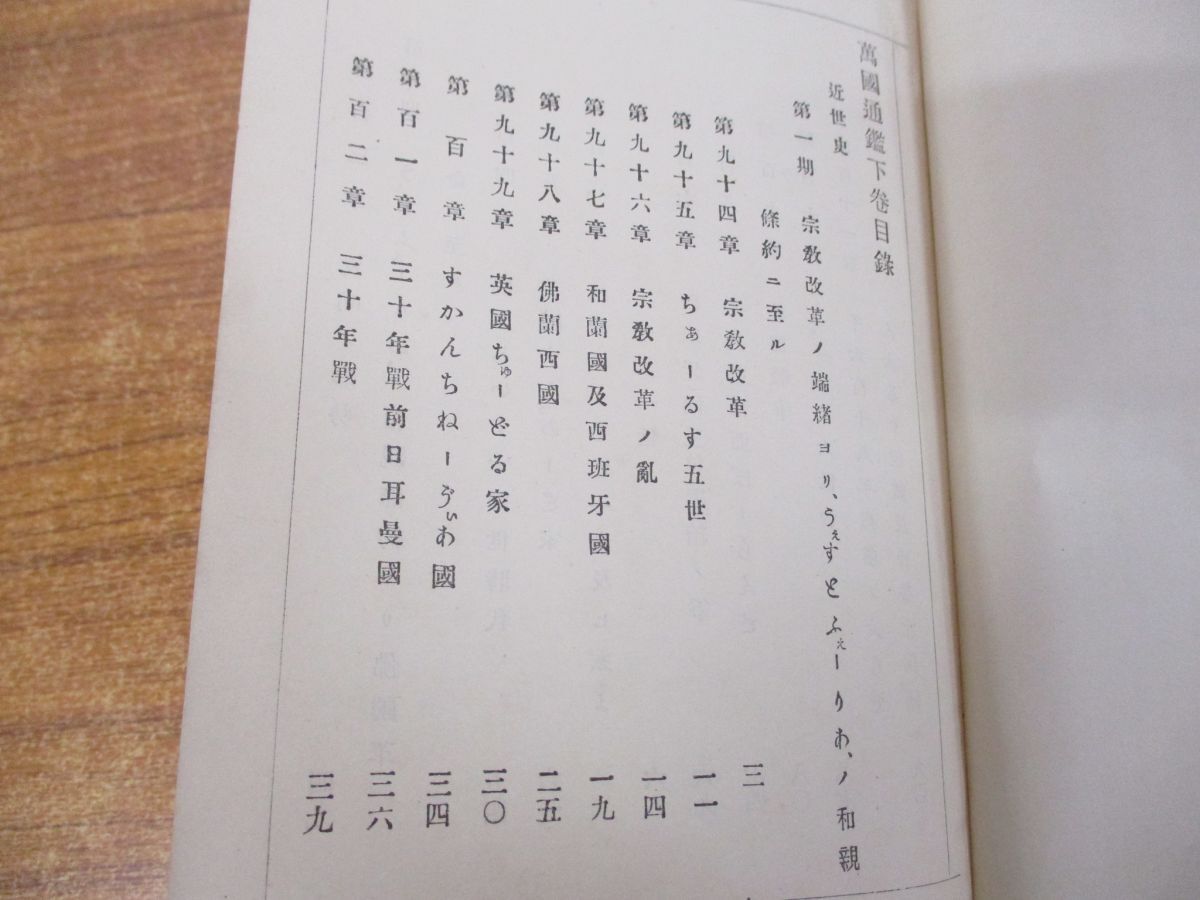 萬國通鑑下卷目錄
近世史
第一期 宗敎改革ノ端緖ヨリ、うぇすとふぇーりあ、ノ和親
條約ニ至ル
第九十四章 宗敎改革 三
第九十五章 ちぁーるす五世 一一
第九十六章 宗敎改革ノ亂 一四
第九十七章 和蘭國及西班牙國 一九
第九十八章 佛蘭西國 二五
第九十九章 英國ちゅーどる家 三〇
第百章 すかんちねーゔぃあ國 三四
第百一章 三十年戰前日耳曼國 三六
第百二章 三十年戰 三九